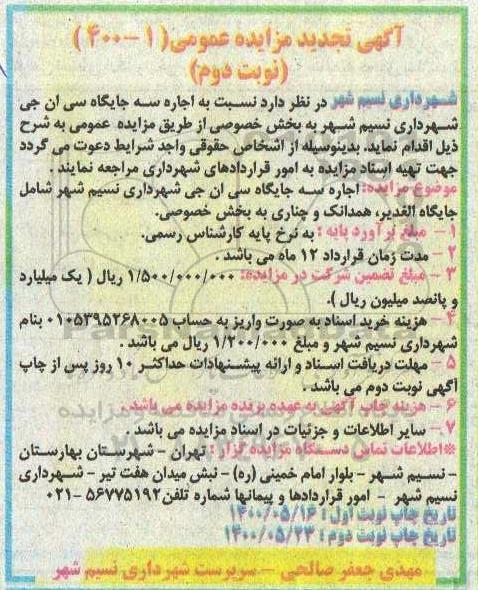 آگهی تجدید مزایده عمومی( ۱ -۴۰۰ )
(نوبت دوم)
شهرداری نسیم شهر در نظر دارد نسبت به اجاره سه جایگاه سی ان جی
شهرداری نسیم شهر به بخش خصوصی از طریق مزایده عمومی به شرح
ذیل اقدام نماید. بدینوسیله از اشخاص حقوقی واجد شرایط دعوت می گردد
جهت تهیه اسناد مزایده به امور قراردادهای شهرداری مراجعه نمایند .
موضوع مزایده: اجاره سه جایگاه سی ان جی شهرداری نسیم شهر شامل
جایگاه الغدیر، همدانک و چناری به بخش خصوصی.
۱ - مبلغ برآورد پایه : به نرخ پایه کارشناس رسمی.
۲ - مدت زمان قرارداد ۱۲ ماه می باشد .
۳ - مبلغ تضمین شرکت در مزایده: ۱/۵۰۰/۰۰۰/۰۰۰ ریال ( یک میلیارد
و پانصد میلیون ریال ).
۴- هزینه خرید اسناد به صورت واریز به حساب ۰۱۰۵۳۹۵۲۶۸۰۰۵ بنام
شهرداری نسیم شهر و مبلغ ۱/۲۰۰/۰۰۰ ریال می باشد .
۵ - مهلت دریافت اسناد و ارائه پیشنهادات حداکثر ۱۰ روز پس از چاپ
آگهی نوبت دوم می باشد .
۶ - هزینه چاپ آگهی به عهده برنده مزایده می باشد .
۷ - سایر اطلاعات و جزئیات در اسناد مزایده می باشد .
*اطلاعات تماس دستگاه مزایده گزار : تهران - شهرستان بهارستان
- نسیم شهر - بلوار امام خمینی (ره) - نبش میدان هفت تیر - شهرداری
نسیم شهر - امور قراردادها و پیمانها شماره تلفن ۵۶۷۷۵۱۹۲ -۰۲۱
تاریخ چاپ نوبت اول : ۱۴۰۰/۰۵/۱۶
تاریخ چاپ نوبت دوم : ۱۴۰۰/۰۵/۲۳
مهدی جعفر صالحی - سرپرست شهرداری نسیم شهر